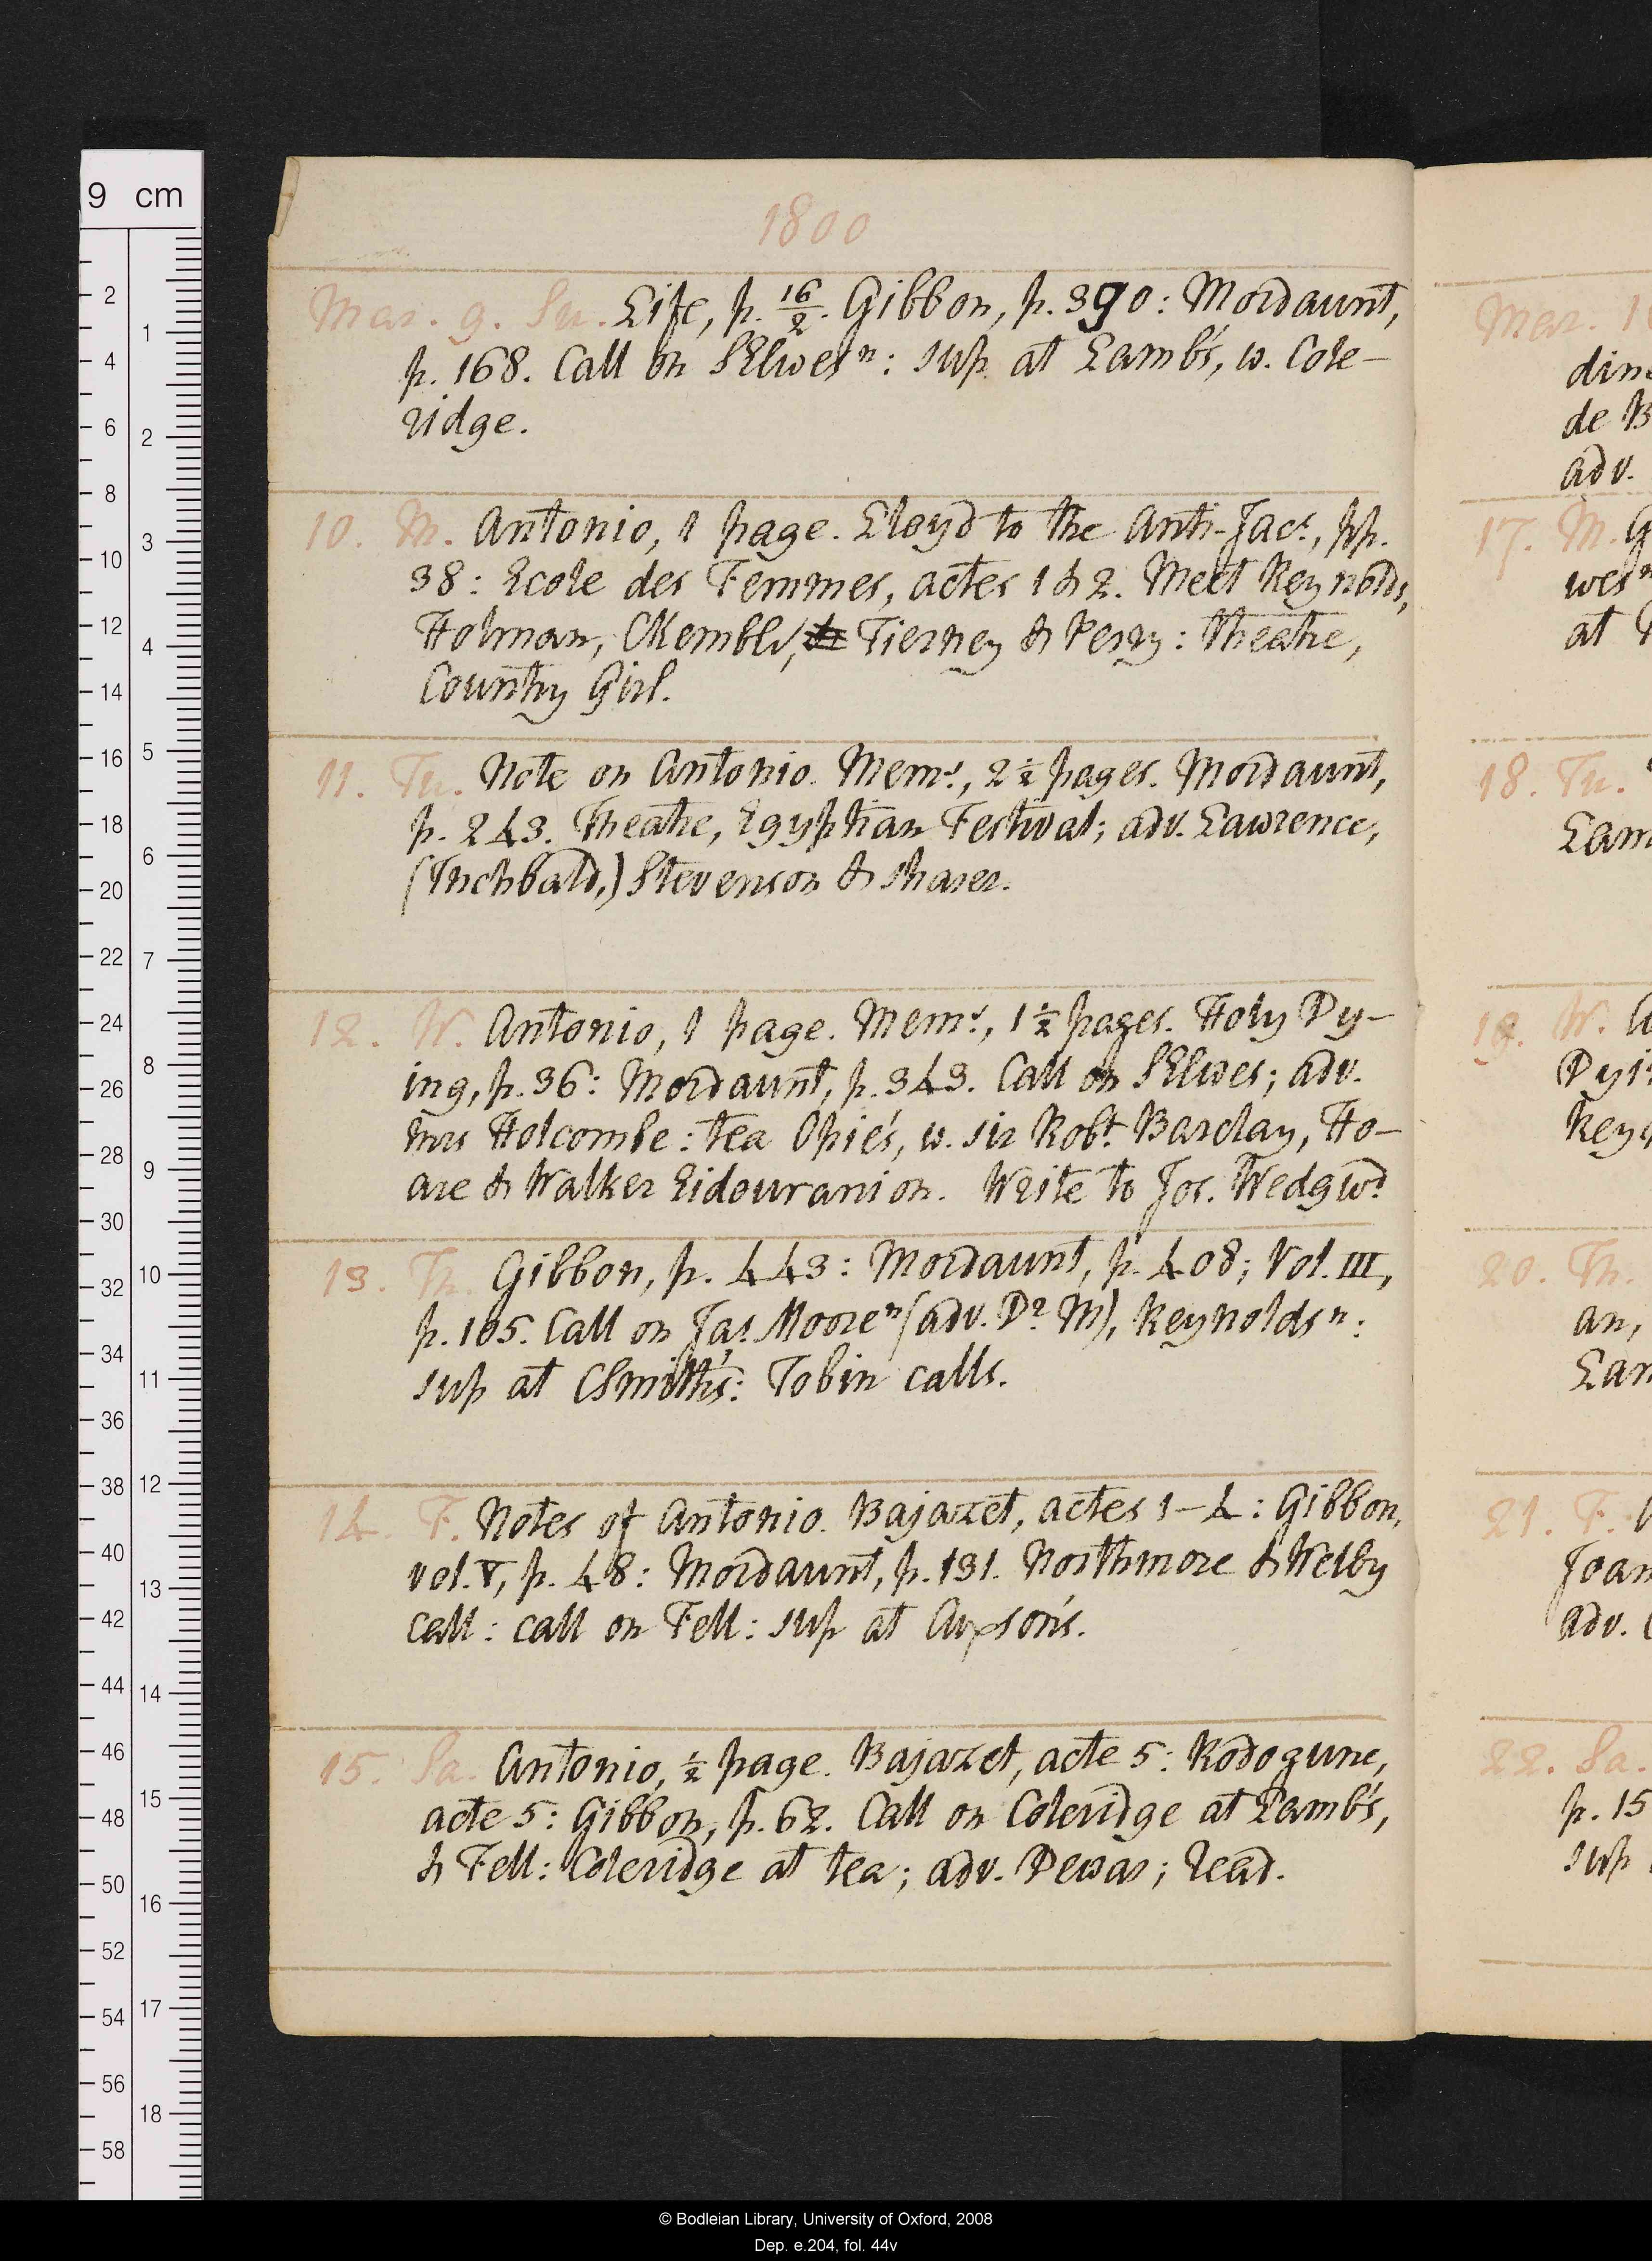 1800
Mar. 9. Su. Life, p. 16/2. Gibbon, p. 390: Mordaunt,
p. 168. Call on SElwes n: sup at Lamb's, w. Cole-
ridge.
10. M. Antonio, 1 page. Lloyd to the Anti-Jacs, pp.
38: Ecole des Femmes, actes 1 & 2. Meet Reynolds,
Holman, CKemble, Tierney & Perry: theatre,
Country Girl.
11. Tu. Note on Antonio. Mems, 2 ½ pages. Mordaunt,
p. 243. Theatre, Egyptian Festival; adv. Lawrence,
(Inchbald,) Stevenson & Sharer.
12. W. Antonio, 1 page. Mems, 1 ½ pages. Holy Dy-
ing, p. 36: Mordaunt, p. 343. Call on SElwes; adv.
mrs Holcombe: tea Opie's, w. sir Robt Barclay, Ho-
are & Walker Eidouranion. Write to Jos. Wedgwd
13. Th. Gibbon, p. 443: Mordaunt, p. 408; Vol. III,
p. 105. Call on Jas Moore n (adv. Dr M), Reynolds n:
sup at CSmith's: Tobin calls.
14. F. Notes of Antonio. Bajazet, actes 1-4: Gibbon,
vol. V, p. 48: Mordaunt, p. 131. Northmore & Welby
call: call on Fell: sup at Cuxson's.
15. Sa. Antonio, ½ page. Bajazet, acte 5: Rodogune,
acte 5: Gibbon, p. 62. Call on Coleridge at Lamb's,
& Fell: Coleridge at tea; adv. Dewar; Read.
Mar.
din
de B
adv.
17. M. G
wes n
at
18. Tu.
Lam
19. W.
Dyi
Rey
20. Th.
an,
Lam
21. F.
Joan
adv.
22. Sa.
p. 15
sup
9 cm
2 4 6 8 10 12 14 16 18 20 22 24 26 28 30 32 34 36 38 40 42 44 46 48 50 52 54 56 58
1 2 3 4 5 6 7 8 9 10 11 12 13 14 15 16 17 18
© Bodleian Library, University of Oxford, 2008
Dep. e.204, fol. 44v